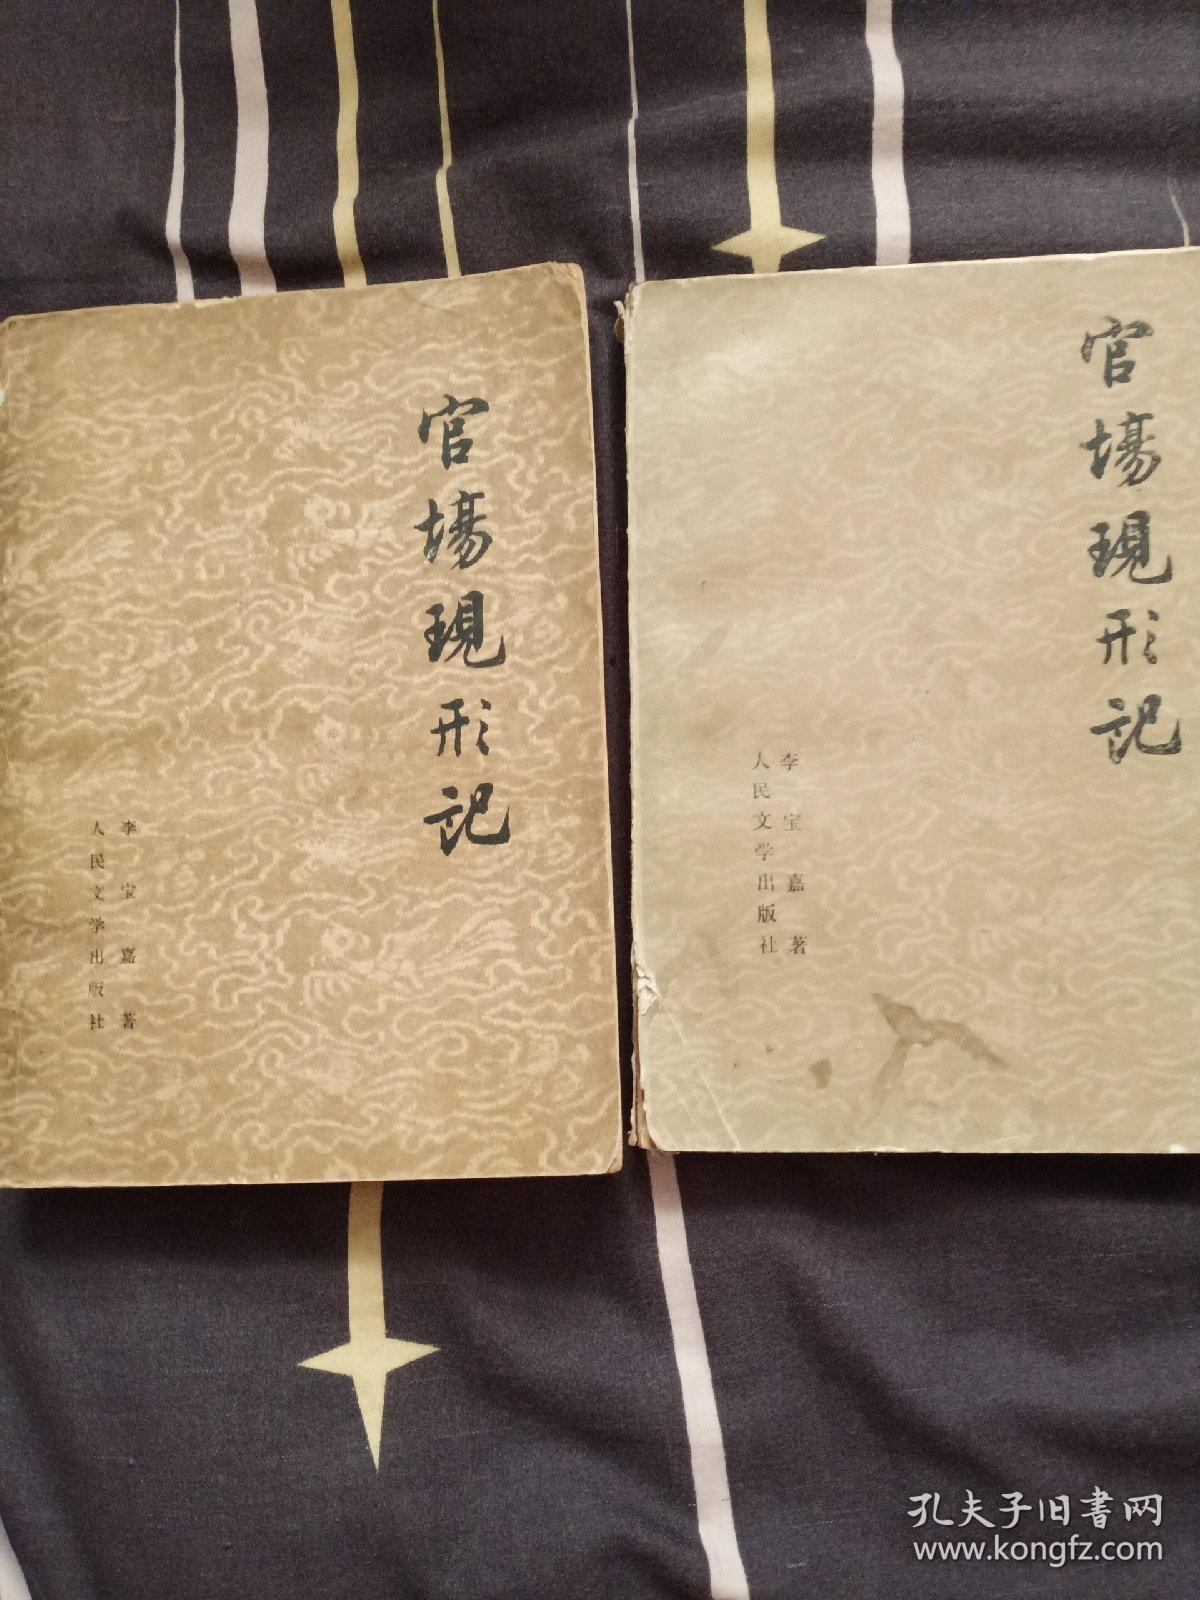 官場現形記
李宝嘉著
人民文学出版社
官場現形記
李宝嘉著
人民文学出版社
孔夫子旧书网
www.kongfz.com